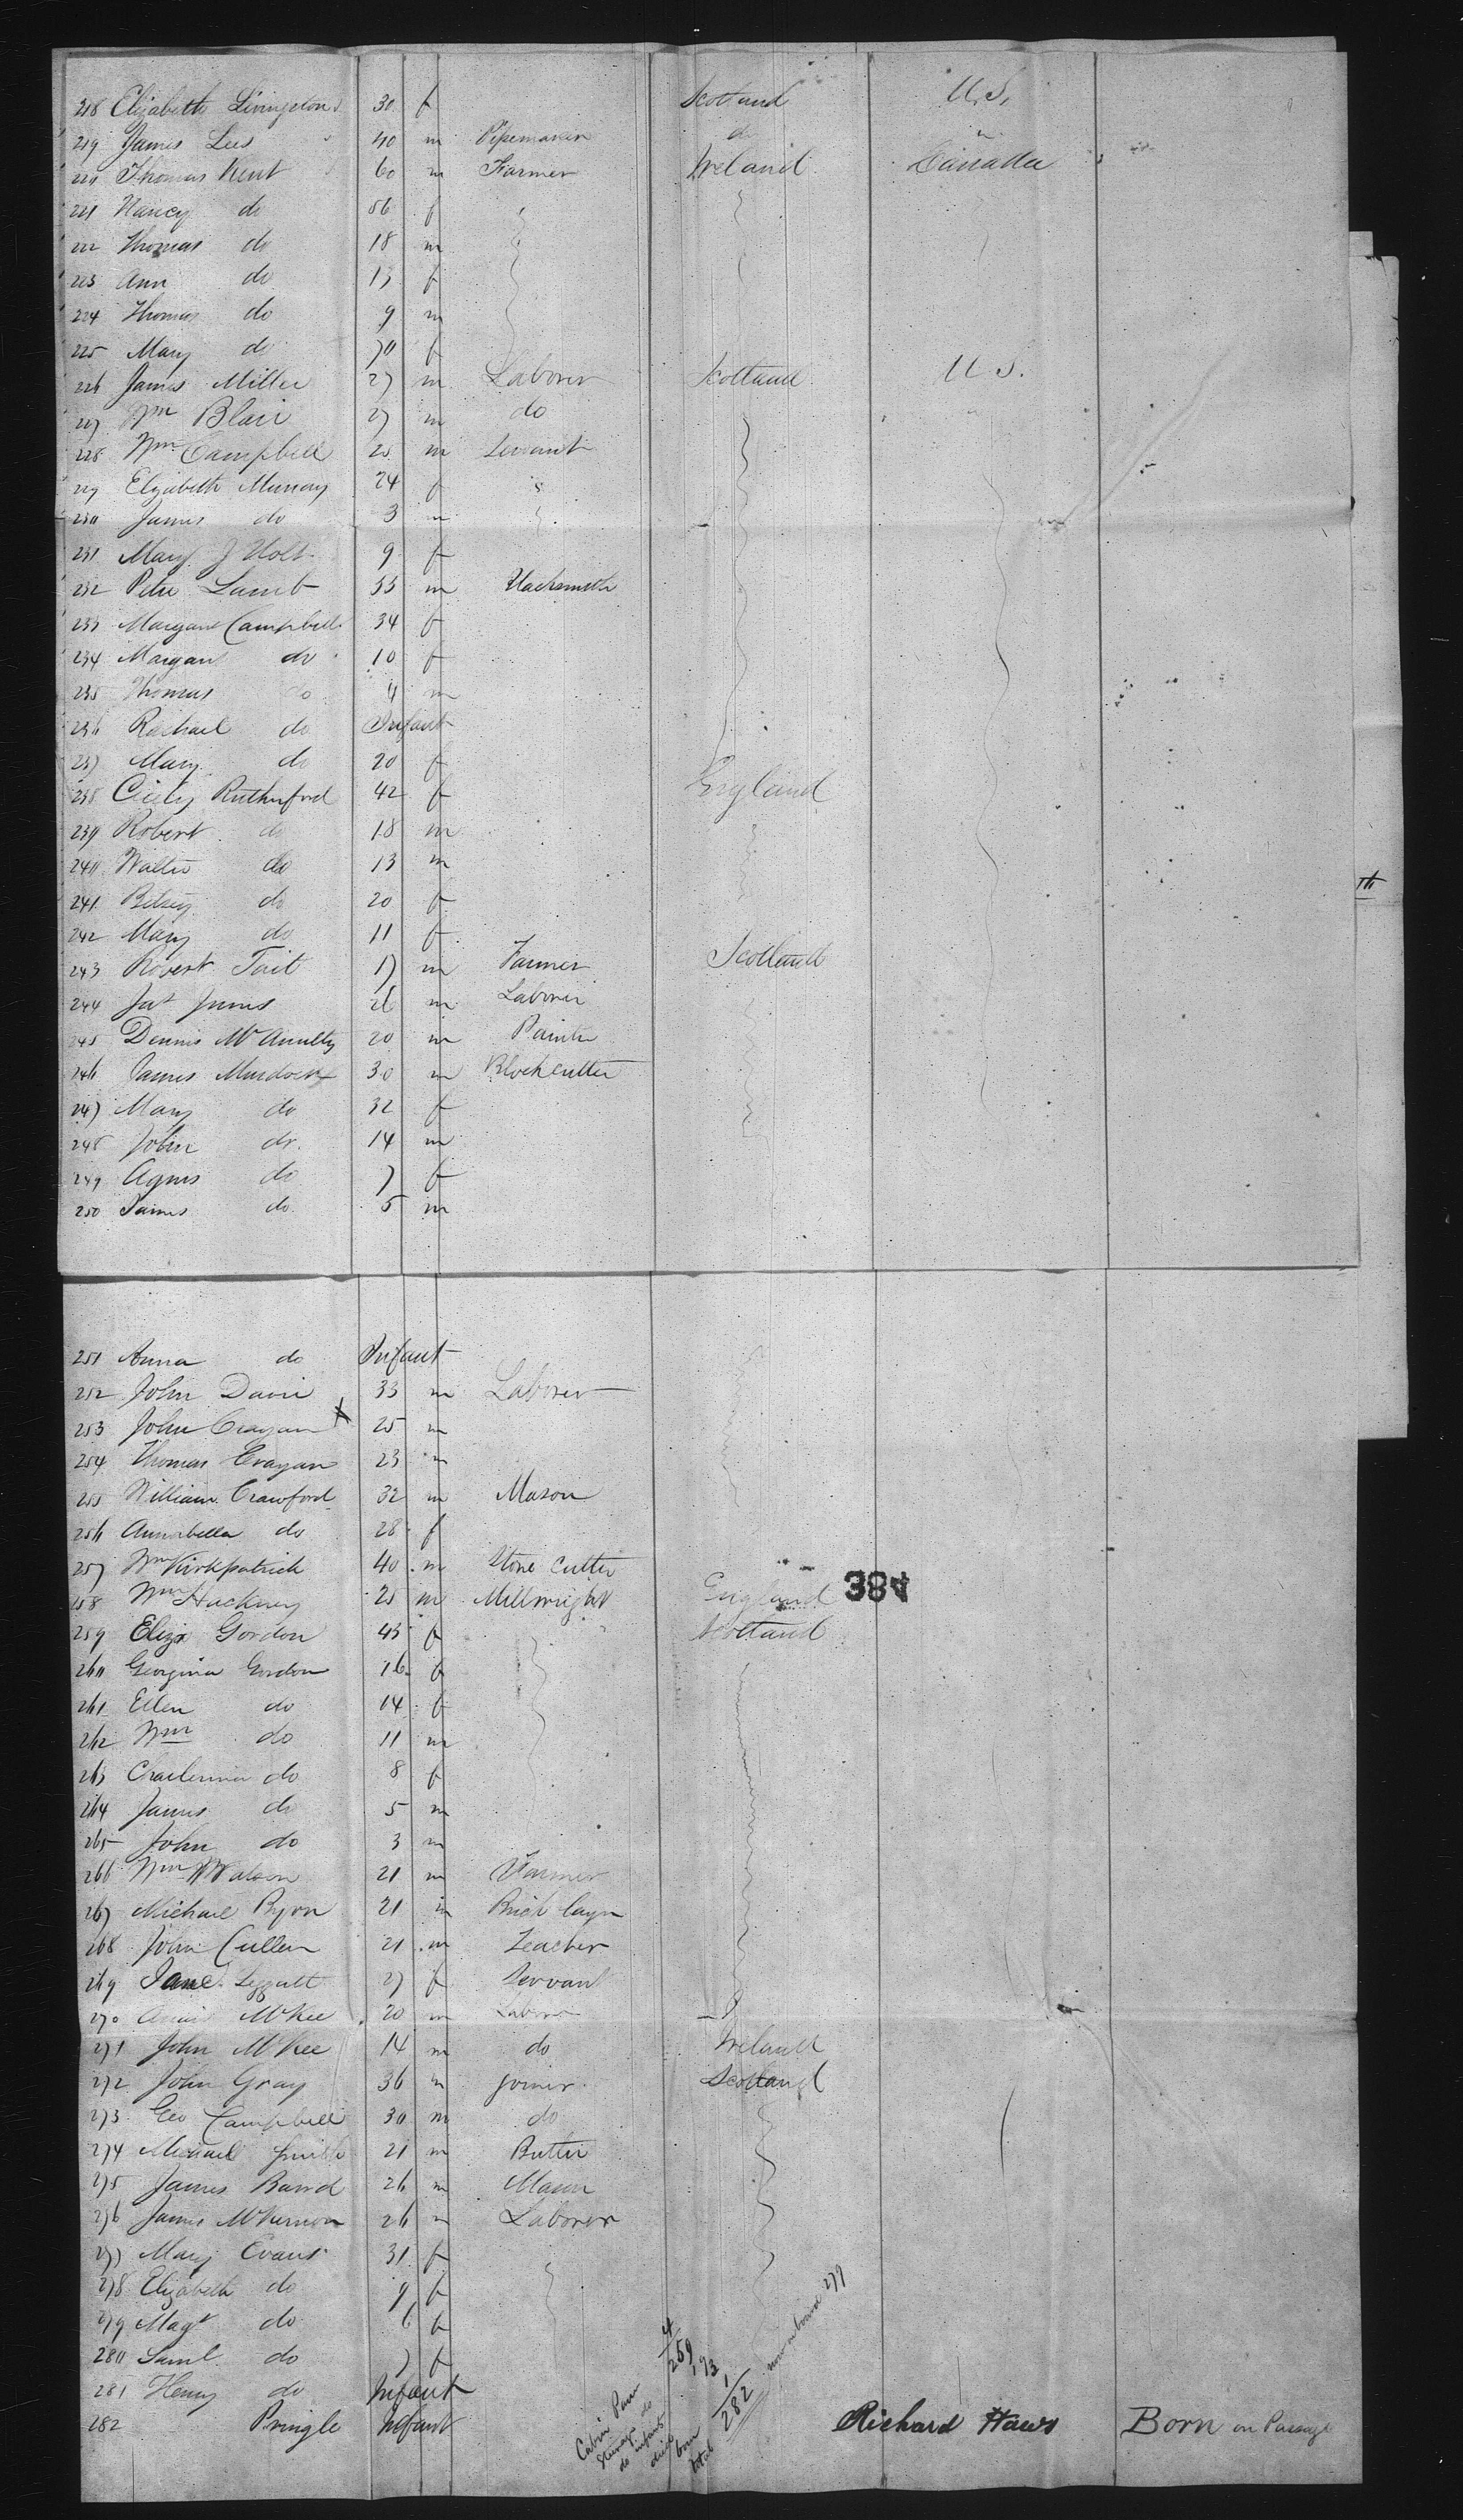 218 Elizabeth Livingston 30 f Scotland U.S.
219 James Lees 40 m Pipemaker do "
220 Thomas Kent 60 m Farmer Ireland Canada
221 Nancy do 56 f
222 Thomas do 18 m
223 Ann do 13 f
224 Thomas do 9 m
225 Mary do 70 f
226 James Miller 27 m Laborer Scotland U S.
227 Wm Blair 27 m do "
228 Wm Campbell 20 m Servant
229 Elizabeth Murray 24 f
230 James do 3 m
231 Mary J Holt 9 f
232 Peter Lamb 33 m Blacksmith
233 Margaret Campbell 34 f
234 Margaret do 10 f
235 Thomas do 4 m
236 Rachael do Infant
237 Mary do 20 f
238 Cicily Rutherford 42 f England
239 Robert do 18 m
240 Walter do 13 m
241 Betsey do 20 f
242 Mary do 11 f
243 Robert Tait 17 m Farmer Scotland
244 Jas 26 m Laborer
245 Dennis McAnulty 20 m Painter
246 James Murdock 30 m Blockcutter
247 Mary do 32 f
248 John do 14 m
249 Agnes do 7 f
250 James do 5 m
251 Anna do Infant
252 John Davie 33 m Laborer
253 John Cragan 25 m
254 Thomas Cragan 23 m
255 William Crawford 32 m Mason
256 Annabella do 28 f
257 Wm Kirkpatrick 40 m Stone Cutter
384
258 Wm Hackney 25 m Millwright England
259 Eliza Gordon 43 f Scotland
260 Georgina Gordon 16 f
261 Ellen do 14 f
262 Wm do 11 m
263 do 8 f
264 James do 5 m
265 John do 3 m
266 Wm Watson 21 m Farmer
267 Michael Byrn 21 m Brick layer
268 John Cullen 21 m Teacher
269 Jane Leggatt 27 f Servant
270 McKee 20 m Labor
271 John McKee 14 m do Ireland
272 John Gray 36 m Joiner Scotland
273 Geo Campbell 30 m do
274 Michael Smith 21 m Butler
275 James Baird 26 m Mason
276 James McKernon 26 m Laborer
277 Mary Evans 31 f
278 Elizabeth do 9 f
279 Magt do 6 f
280 Saml do 7 f
281 Henry do Infant
282 Pringle Infant Richard Haws Born on Passage
Cabin Pass 4
Steerage do 259
do infants
died
born 1
total 282